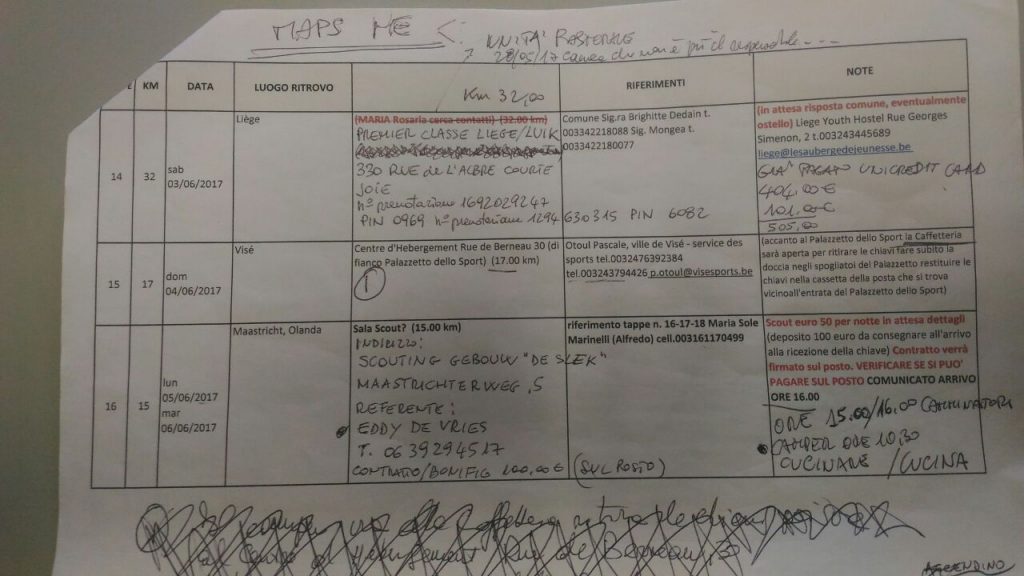 MAPS ME <:
UNITA' PASTORALE
28/05/17
Km 32,00
KM
DATA
LUOGO RITROVO
RIFERIMENTI
NOTE
14
32
sab
03/06/2017
Liège
(MARIA Rosaria cerca contatti) (32.00 km)
PREMIER CLASSE LIEGE/LUIK
330 RUE de L'ALBRE COURTE
JOIE
n° prenotazione 1692029247
PIN 0969 n° prenotazione 1294630315 PIN 6082
Comune Sig.ra Brighitte Dedain t.
003342218088 Sig. Mongea t.
0033422180077
(in attesa risposta comune, eventualmente
ostello) Liege Youth Hostel Rue Georges
Simenon, 2 t.003243445689
liege@lesaubergedejeunesse.be
GIA' PAGATO UNICREDIT CARD
404,00 €
101,00 €
505,00
15
17
dom
04/06/2017
Visé
Centre d'Hebergement Rue de Berneau 30 (di
fianco Palazzetto dello Sport) (17.00 km)
1
Otoul Pascale, ville de Visé - service des
sports tel.0032476392384
tel.003243794426 p.otoul@visesports.be
(accanto al Palazzetto dello Sport la Caffetteria
sarà aperta per ritirare le chiavi fare subito la
doccia negli spogliatoi del Palazzetto restituire le
chiavi nella cassetta della posta che si trova
vicinoall'entrata del Palazzetto dello Sport)
16
15
lun
05/06/2017
mar
06/06/2017
Maastricht, Olanda
Sala Scout? (15.00 km)
INDIRIZZO:
SCOUTING GEBOUW "DE SLEK"
MAASTRICHTERWEG, 5
REFERENTE:
EDDY DE VRIES
T. 0639294517
CONTRATTO/BONIFIG 100,00 € (SUL POSTO)
riferimento tappe n. 16-17-18 Maria Sole
Marinelli (Alfredo) cell.003161170499
Scout euro 50 per notte in attesa dettagli
(deposito 100 euro da consegnare all'arrivo
alla ricezione della chiave) Contratto verrà
firmato sul posto. VERIFICARE SE SI PUO'
PAGARE SUL POSTO COMUNICATO ARRIVO
ORE 16.00
ORE 15.00/16.00 CAMMINATORI
CAMPER ORE 10,30
CUCINARE / CUCINA
Rue de Berneau, 30
ASCENDINO